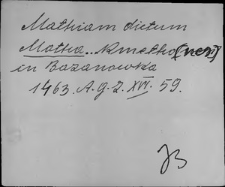 Mathiam dictum
Mathia.. Kmetho [nem]
in Bazanowska
1463. A.g.Z. XVI. 59.
JB